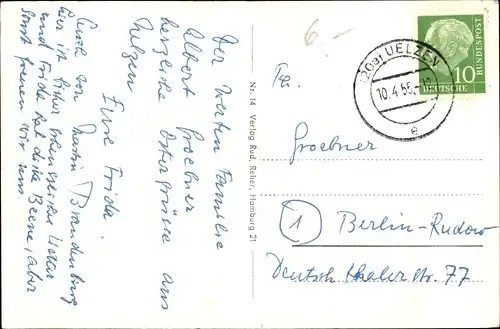 Der werten Familie
Albert Groebner
herzliche Ostergrüße aus
Uelzen
Eure Frida.
Auch von Martin Brandenburg
hier ist bisher kein
und Frida hat dicke Beene, aber
sonst freuen wir uns.
Nr. 14 Verlag Rud. Reher, Hamburg 21
6.-
20a UELZEN
10.4.55.-12
e
10
DEUTSCHE
BUNDESPOST
Fa.
Groebner
1 Berlin-Rudow
Deutschthaler Str. 77